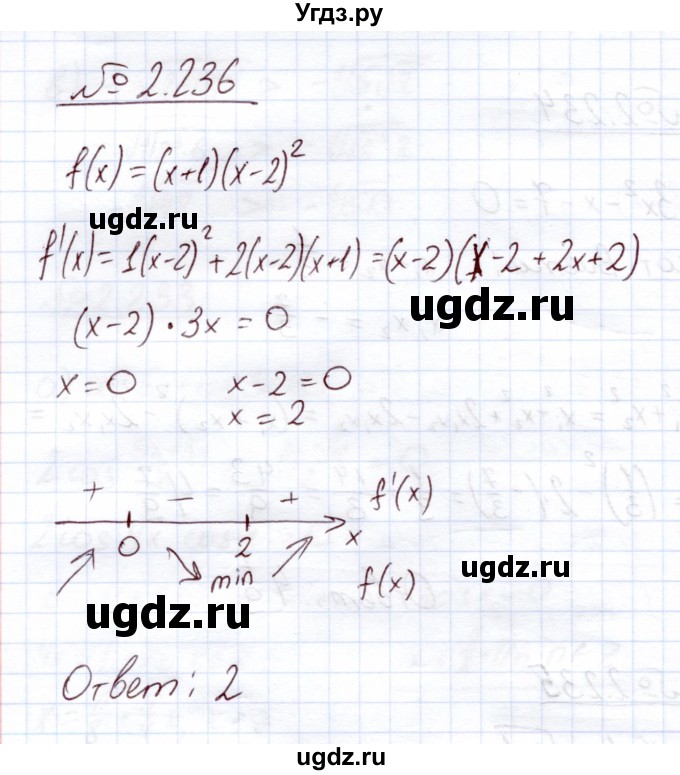 Угдз.ру
№ 2.236
f(x) = (x+1)(x-2)²
ugdz.ru
f'(x) = 1(x-2)² + 2(x-2)(x+1) = (x-2)(x-2+2x+2)
ugdz.ru
(x-2) · 3x = 0
x = 0 x-2 = 0
x = 2
+ − + f'(x)
0 2 x
min f(x)
ugdz.ru
ugdz.ru
Ответ: 2
ugdz.ru
ugdz.ru